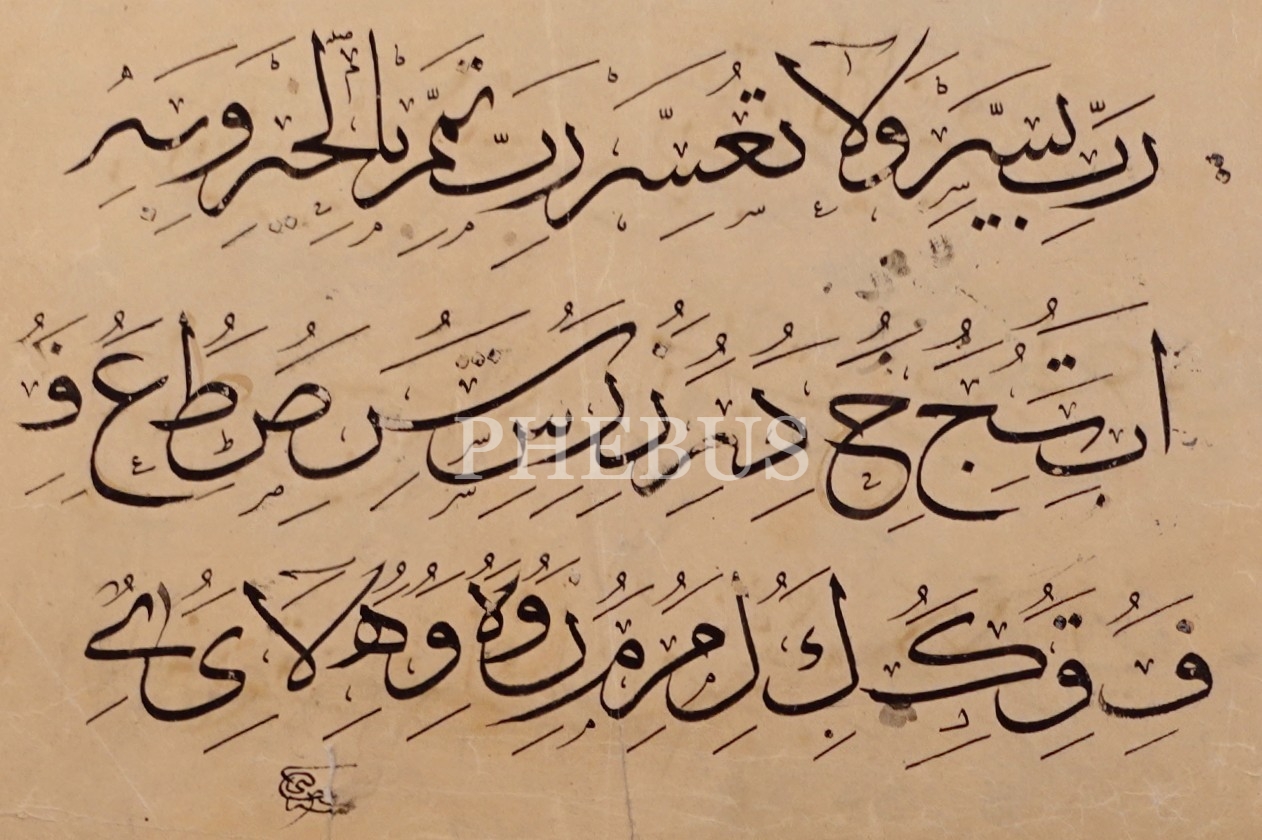 رب يسر ولا تعسر رب تمم بالخير
ا ب ت ج ح د ر ر س س ص ط ع ف
PHEBUS
ف ق ك ك ل م م ن و ه و ه لا ى ے